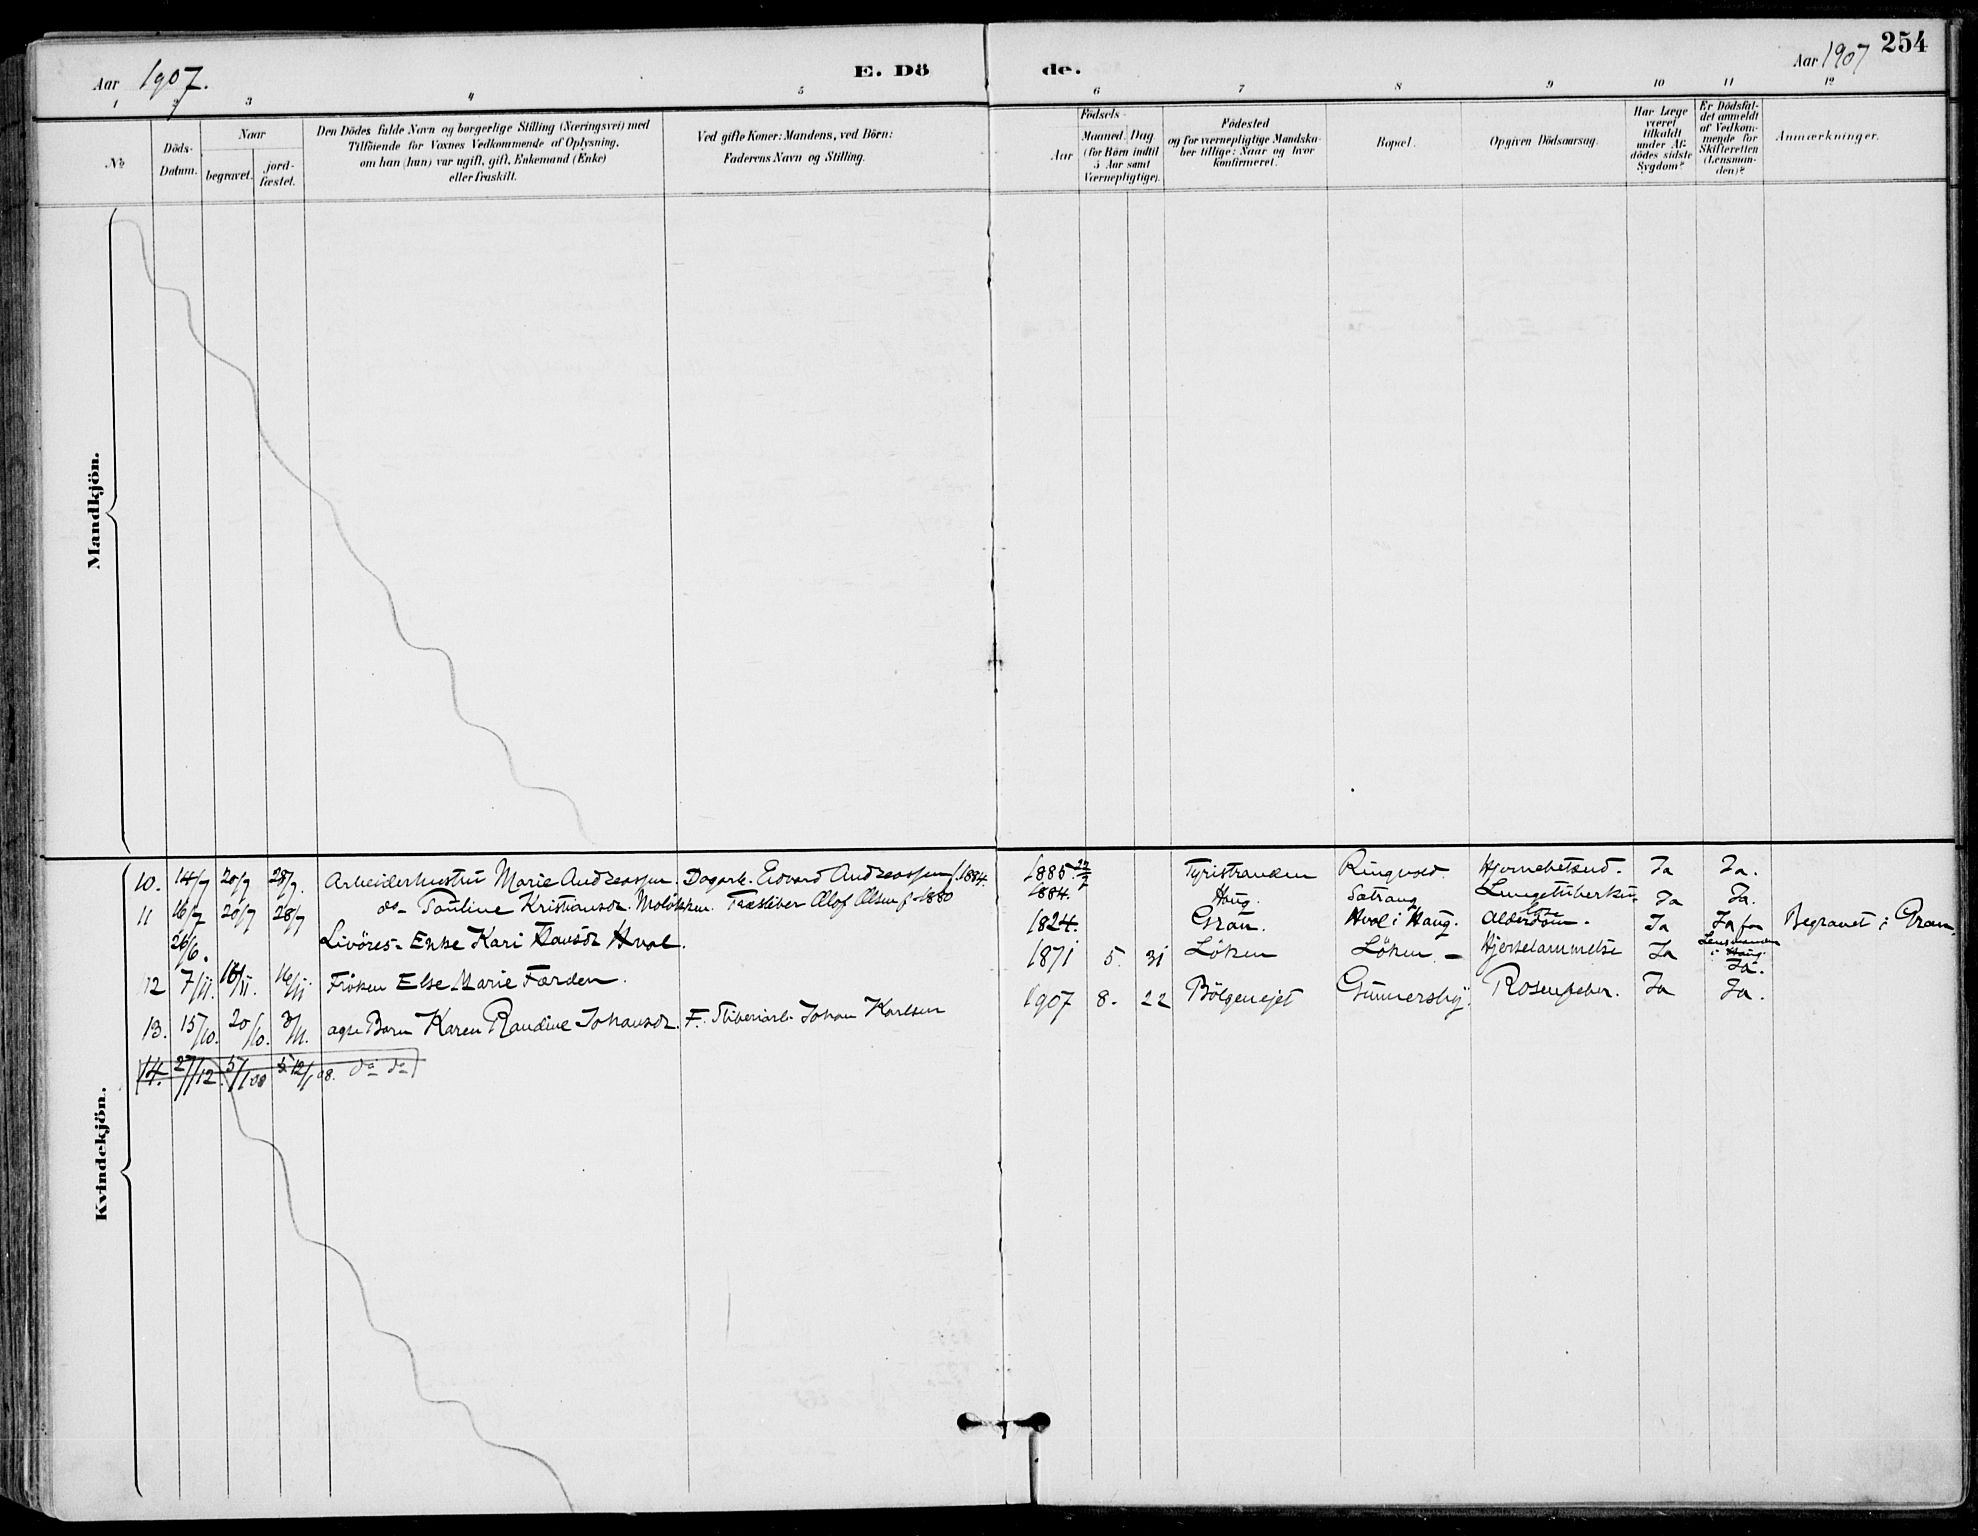 254
Aar 1907.
E. Dö
de.
Aar 1907
1 2 3 4 5 6 7 8 9 10 11 12
No
Döds-Datum.
Naar
begravet.
jord-fæstet.
Den Dödes fulde Navn og borgerlige Stilling (Næringsvei) med
Tilföiende for Voxnes Vedkommende af Oplysning,
om han (hun) var ugift, gift, Enkemand (Enke)
eller fraskilt.
Ved gifte Koner: Mandens, ved Börn:
Faderens Navn og Stilling.
Födsels-
Aar
Maaned. Dag
(for Börn indtil
5 Aar samt
Værnepligtige).
Födested
og for værnepligtige Mandska-
ber tillige: Naar og hvor
konfirmeret.
Bopæl.
Opgiven Dödsaarsag.
Har Læge
været
tilkaldt
under Af-
dödes sidste
Sygdom?
Er Dödsfal-
det anmeldt
af Vedkom-
mende for
Skifteretten
(Lensman-
den)?
Anmærkninger.
Mandkjön.
Kvindekjön.
10. 14/7 20/7 28/7. Arbeiderhustru Marie Andreassen. Dagarb. Edvard Andreassen f. 1884. 1885 27/7 Tyristranden Ringvold. Hjernebetænd. Ja Ja.
11 16/7 20/7 28/7 do- Pauline Kristiansdr. Moløkken. Træsliber Olof Olsen f. 1880 1884. Haug. Sætrang Lungetuberku- Ja Ja.
26/6. Enke Kari Hval. 1824. Gran. Hval i Haug. Alderdom. Ja Ja for Lensmanden i Haug. Begravet i Gran.
12 7/11. 16/11. 16/11 Frøken Else Marie Færden. 1871 5. 31 Löken Löken. - Hjertelammelse Ja Ja.
13. 15/10. 20/10. 3/11. ægte Barn Karen Randine Johansdr. F. Sliberiarb. Johan Karlsen 1907 8. 22 Bölgenejet Gunnersby Rosenfeber. Ja Ja.
14. 27/12 5/1 08 12/1 08. do do